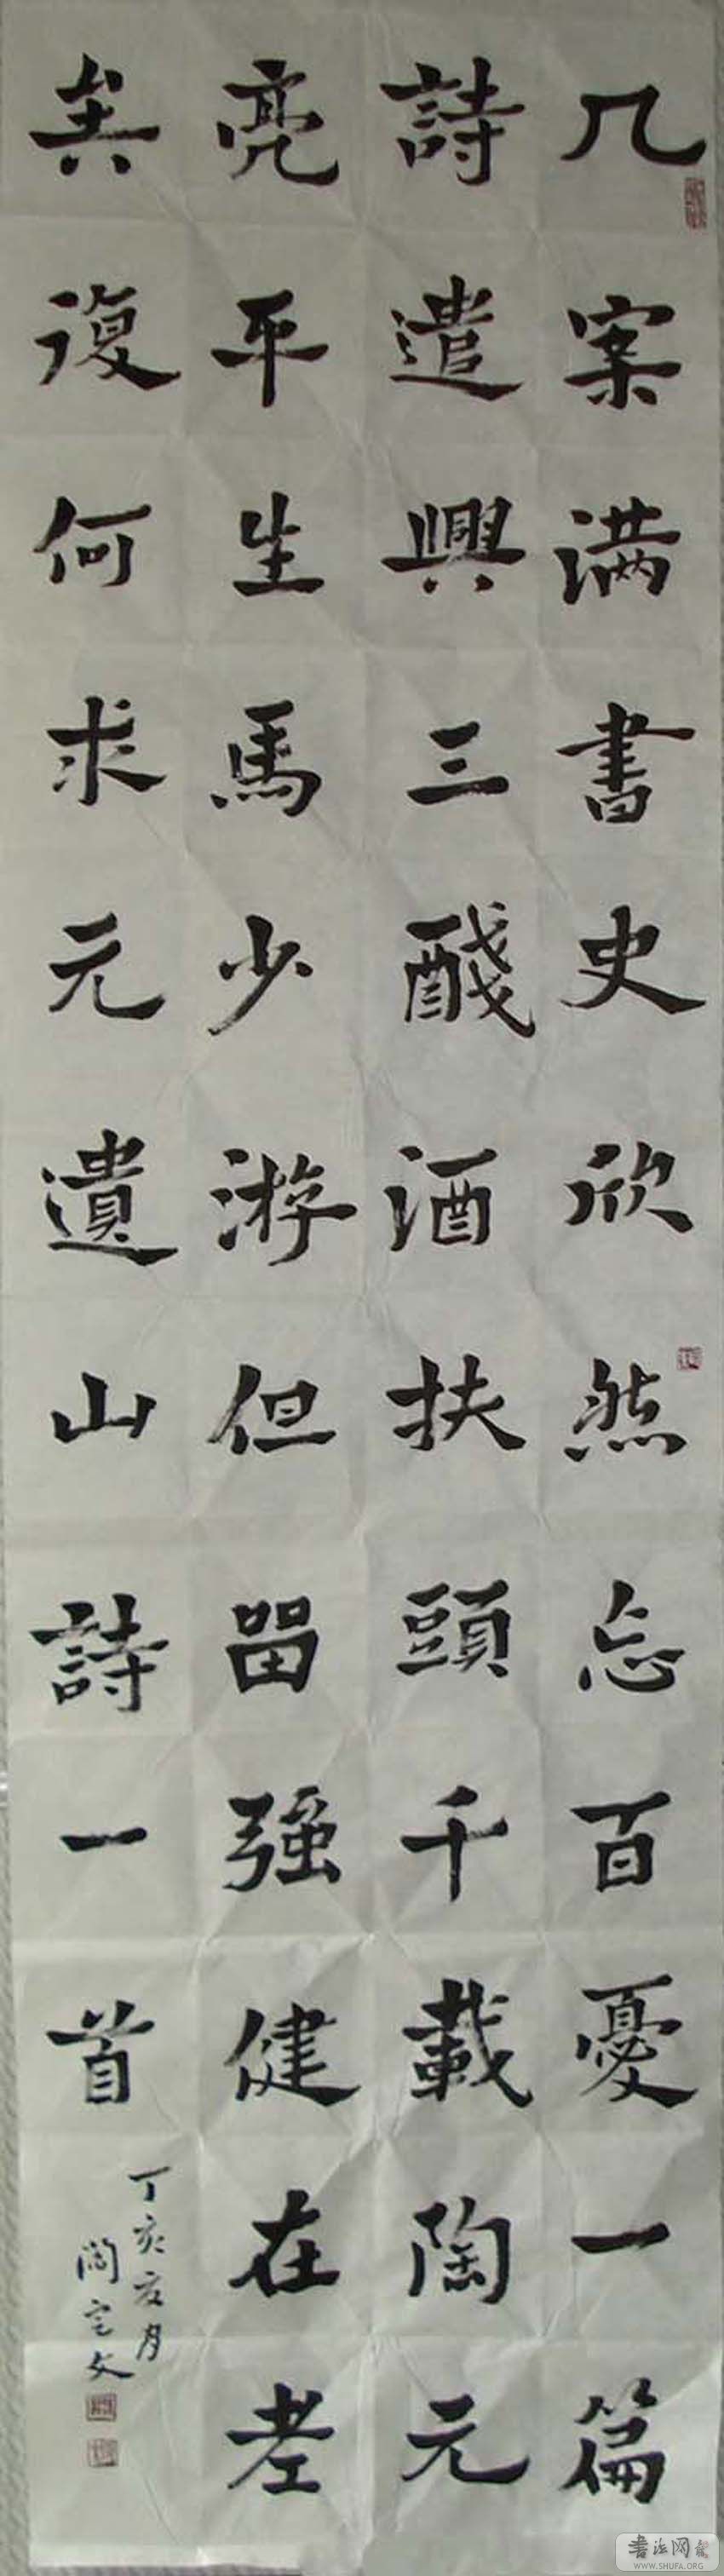 几案满書史欣然忘百憂一篇
詩遣興三醆酒扶頭千載陶元
亮平生馬少游但留强健在老
矣復何求元遺山詩一首
丁亥月
文
書法网
WWW.SHUFA.ORG